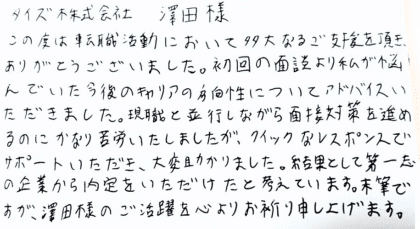 タイズ株式会社 澤田様
この度は転職活動において多大なるご支援を頂き、
ありがとうございました。初回の面談より私が悩
んでいた今後のキャリアの方向性についてアドバイスい
ただきました。現職と並行しながら面接対策を進め
るのにかなり苦労いたしましたが、クイックなレスポンスで
サポートいただき、大変助かりました。結果として第一志
の企業から内定をいただけたと考えています。末筆で
すが、澤田様のご活躍を心よりお祈り申し上げます。